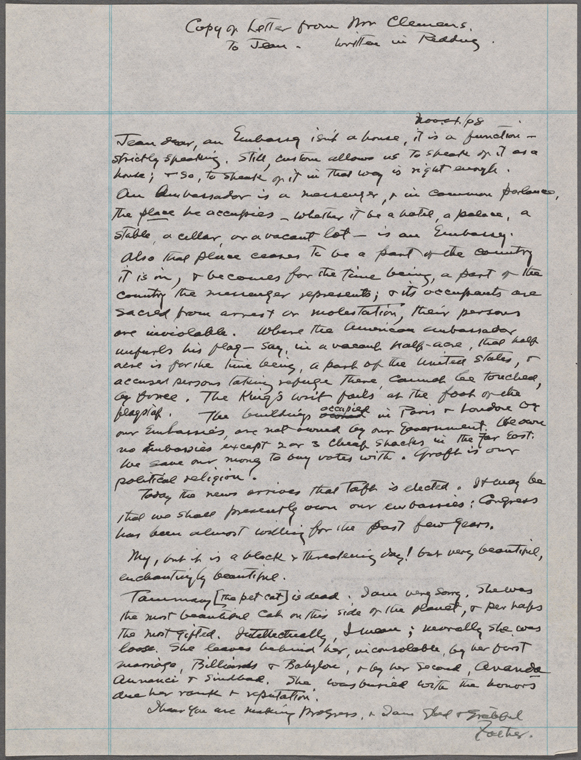 Copy of Letter from Mr Clemens.
To Jean - written in Redding.
Nov. 4/08
Jean dear, an Embassy isn't a house, it is a function -
strictly speaking. Still, custom allows us to speak of it as a
house; & so, to speak of it in that way is right enough.
An Ambassador is a messenger, & in common parlance,
the place he occupies - whether it be a hotel, a palace, a
stable, a cellar, or a vacant lot - is an Embassy.
Also that place ceases to be a part of the country
it is in, & becomes for the time being, a part of the
country the messenger represents; & its occupants are
sacred from arrest or molestation, their persons
are inviolable. Where the American ambassador
unfurls his flag - say, in a vacant half-acre, that half
acre is for the time being, a part of the United States, &
accused persons taking refuge there, cannot be touched,
by force. The King's writ fails at the foot of the
flagstaff. The buildings occupied in Paris & London by
our Embassies, are not owned by our Government. We own
no Embassies except 2 or 3 cheap shacks in the far East.
We save our money to buy votes with. Graft is our
political religion.
Today the news arrives that Taft is elected. It may be
that we shall presently own our embassies; Congress
has been almost willing for the past few years.
My, but it is a black & threatening day! but very beautiful,
enchantingly beautiful.
Tammany [the pet cat] is dead. I am very sorry. She was
the most beautiful cat on this side of the planet, & perhaps
the most gifted. Intellectually, I mean; morally she was
loose. She leaves behind her, inconsolable, by her first
marriage, Billiards & Babylon, & by her second, Ananda
Annanci & Sindbad. She was buried with the honors
due her rank & reputation.
I hear you are making progress, & I am glad & grateful
Father.